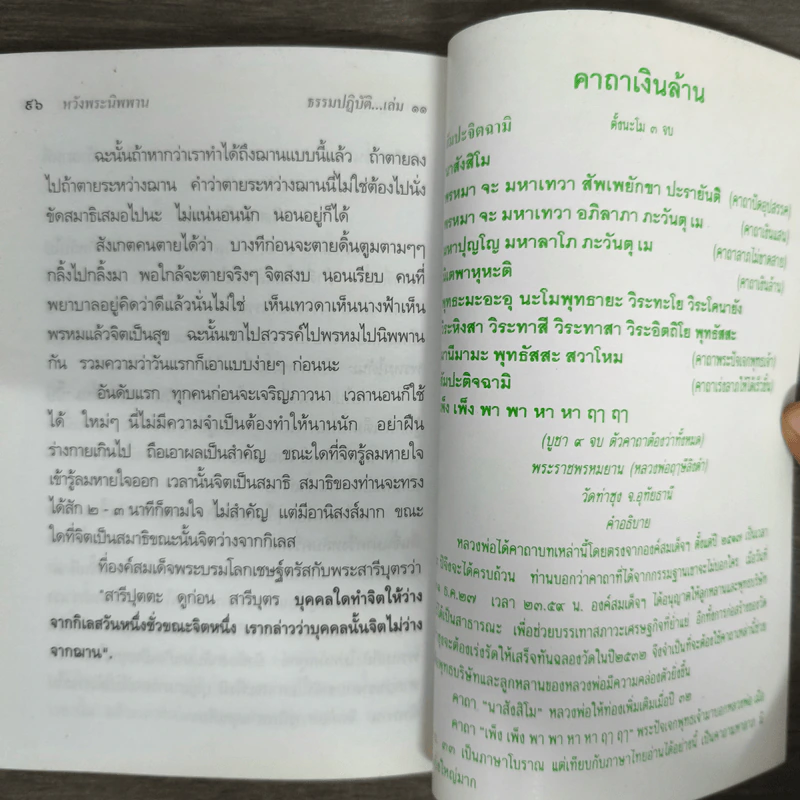 ๙๖ หวังพระนิพพาน ธรรมปฏิบัติ...เล่ม ๑๑
ฉะนั้นถ้าหากว่าเราทำได้ถึงฌานแบบนี้แล้ว ถ้าตายลง
ไปถ้าตายระหว่างฌาน คำว่าตายระหว่างฌานนี่ไม่ใช่ต้องไปนั่ง
ขัดสมาธิเสมอไปนะ ไม่แน่นอนนัก นอนอยู่ก็ได้
สังเกตคนตายได้ว่า บางทีก่อนจะตายดิ้นตูมตามๆๆ
กลิ้งไปกลิ้งมา พอใกล้จะตายจริงๆ จิตสงบ นอนเรียบ คนที่
พยาบาลอยู่คิดว่าดีแล้วนั่นไม่ใช่ เห็นเทวดาเห็นนางฟ้าเห็น
พรหมแล้วจิตเป็นสุข ฉะนั้นเขาไปสวรรค์ไปพรหมไปนิพพาน
กัน รวมความว่าวันแรกก็เอาแบบง่ายๆ ก่อนนะ
อันดับแรก ทุกคนก่อนจะเจริญภาวนา เวลานอนก็ใช้
ได้ ใหม่ๆ นี่ไม่มีความจำเป็นต้องทำให้นานนัก อย่าฝืน
ร่างกายเกินไป ถือเอาผลเป็นสำคัญ ขณะใดที่จิตรู้ลมหายใจ
เข้ารู้ลมหายใจออก เวลานั้นจิตเป็นสมาธิ สมาธิของท่านจะทรง
ได้สัก ๒ - ๓ นาทีก็ตามใจ ไม่สำคัญ แต่มีอานิสงส์มาก ขณะ
ใดที่จิตเป็นสมาธิขณะนั้นจิตว่างจากกิเลส
ที่องค์สมเด็จพระบรมโลกเชษฐ์ตรัสกับพระสารีบุตรว่า
"สารีปุตตะ ดูก่อน สารีบุตร บุคคลใดทำจิตให้ว่าง
จากกิเลสวันหนึ่งชั่วขณะจิตหนึ่ง เรากล่าวว่าบุคคลนั้นจิตไม่ว่าง
จากฌาน".
คาถาเงินล้าน
ตั้งนะโม ๓ จบ
ปะจิตฉามิ
นาสังสิโม
พรหมา จะ มหาเทวา สัพเพยักขา ปะรายันติ (คาถาปัดอุปสรรค)
พรหมา จะ มหาเทวา อภิลาภา ภะวันตุ เม (คาถาเงินแสน)
มหาปุญโญ มหาลาโภ ภะวันตุ เม (คาถาลาภไม่ขาดสาย)
เตพาหุหะติ (คาถาเงินล้าน)
พุทธะมะอะอุ นะโมพุทธายะ วิระทะโย วิระโคนายัง
วิระหิงสา วิระทาสี วิระทาสา วิระอิตถิโย พุทธัสสะ
มานีมามะ พุทธัสสะ สวาโหม (คาถาพระปัจเจกพุทธเจ้า)
ปะติจฉามิ (คาถาเร่งลาภให้ได้เร็วขึ้น)
เพ็ง เพ็ง พา พา หา หา ฤา ฤา
(บูชา ๙ จบ ตัวคาถาต้องว่าทั้งหมด)
พระราชพรหมยาน (หลวงพ่อฤาษีลิงดำ)
วัดท่าซุง จ.อุทัยธานี
คำอธิบาย
หลวงพ่อได้คาถาบทเหล่านี้โดยตรงจากองค์สมเด็จฯ ตั้งแต่ปี เป็นเวลา
ปีจึงจะได้ครบถ้วน ท่านบอกว่าคาถาที่ได้จากกรรมฐานเขาจะไม่บอกใคร เมื่อวันที่
ธ.ค.๒๗ เวลา ๒๓.๕๙ น. องค์สมเด็จฯ ได้อนุญาตให้ลูกหลานและพุทธบริษัท
ได้เป็นสาธารณะ เพื่อช่วยบรรเทาสภาวะเศรษฐกิจที่ย่ำแย่ อีกทั้งการก่อสร้างของวัด
จะต้องเร่งรัดให้เสร็จทันฉลองวัดในปี๒๕๓๒ จึงจำเป็นที่จะต้องใช้คาถาเหล่านี้ช่วย
พุทธบริษัทและลูกหลานของหลวงพ่อมีความคล่องตัวยิ่งขึ้น
คาถา "นาสังสิโม" หลวงพ่อให้ท่องเพิ่มเติมเมื่อปี ๓๒
คาถา "เพ็ง เพ็ง พา พา หา หา ฤา ฤา" พระปัจเจกพุทธเจ้ามาบอกหลวงพ่อ เมื่อ
๓๓ เป็นภาษาโบราณ แต่เทียบกับภาษาไทยอ่านได้อย่างนี้ เป็นคาถามหาลาภ มี
ใหญ่มาก